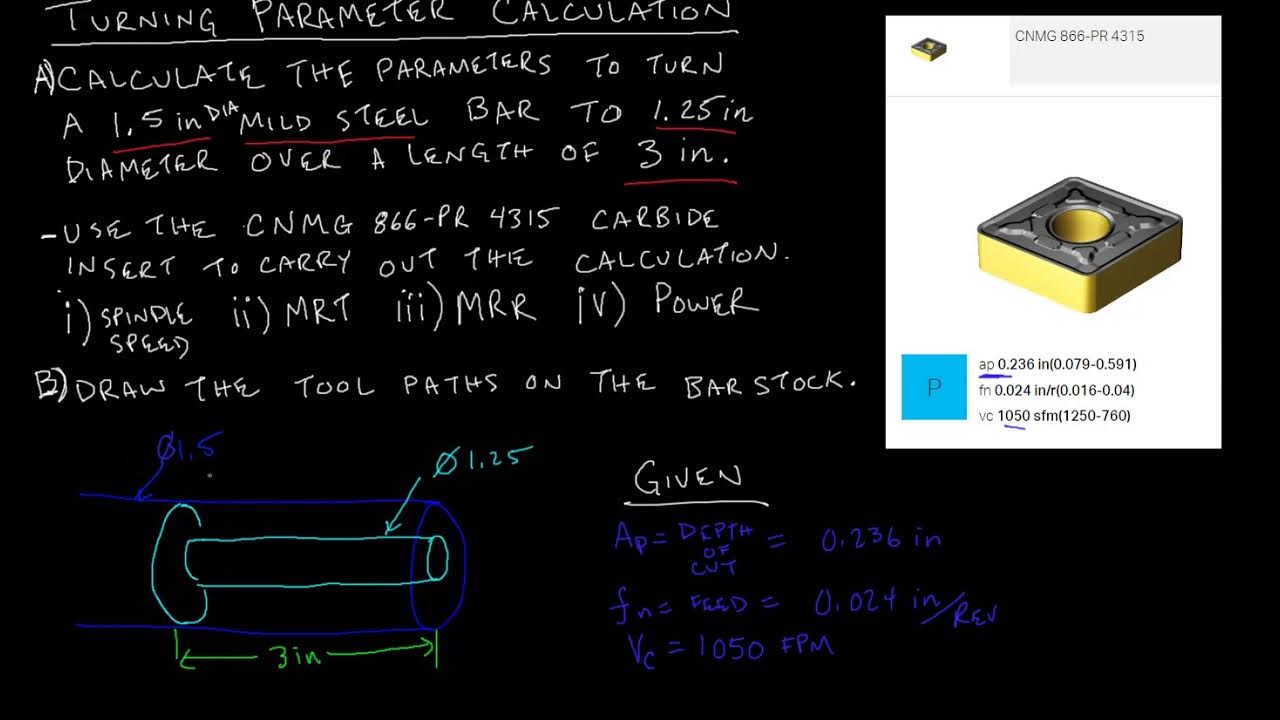 TURNING PARAMETER CALCULATION
A) CALCULATE THE PARAMETERS TO TURN
A 1.5 in DIA MILD STEEL BAR TO 1.25 in
DIAMETER OVER A LENGTH OF 3 in.
- USE THE CNMG 866-PR 4315 CARBIDE
INSERT TO CARRY OUT THE CALCULATION.
i) SPINDLE SPEED ii) MRT iii) MRR iv) POWER
B) DRAW THE TOOL PATHS ON THE BAR STOCK.
Ø1.5
Ø1.25
3 in
CNMG 866-PR 4315
P
ap 0.236 in(0.079-0.591)
fn 0.024 in/r(0.016-0.04)
vc 1050 sfm(1250-760)
GIVEN
Ap = DEPTH OF CUT = 0.236 in
fn = FEED = 0.024 in/REV
Vc = 1050 FPM